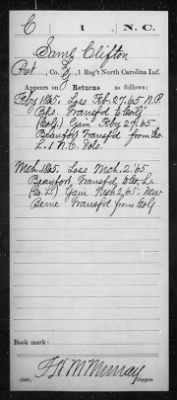 C 1 N.C.
Saml Clifton
Pvt, Co. , 1 Reg't North Carolina Inf.
Appears on
Returns as follows:
Feby 1865. Loss Feb. 27. '65 N.P.
Transfd to Co G
(Co G.) Gain Feby 27, 65
Beaufort Transfd from Co
L. 1 N.C. Vols.
Mch. 1865. Loss Mch. 2. '65
Beaufort, Transfd to Co L
(Co L) Gain Mch 2, 65. New
Berne Transfd from Co G
Book mark:
F H M Murray
Copyist.